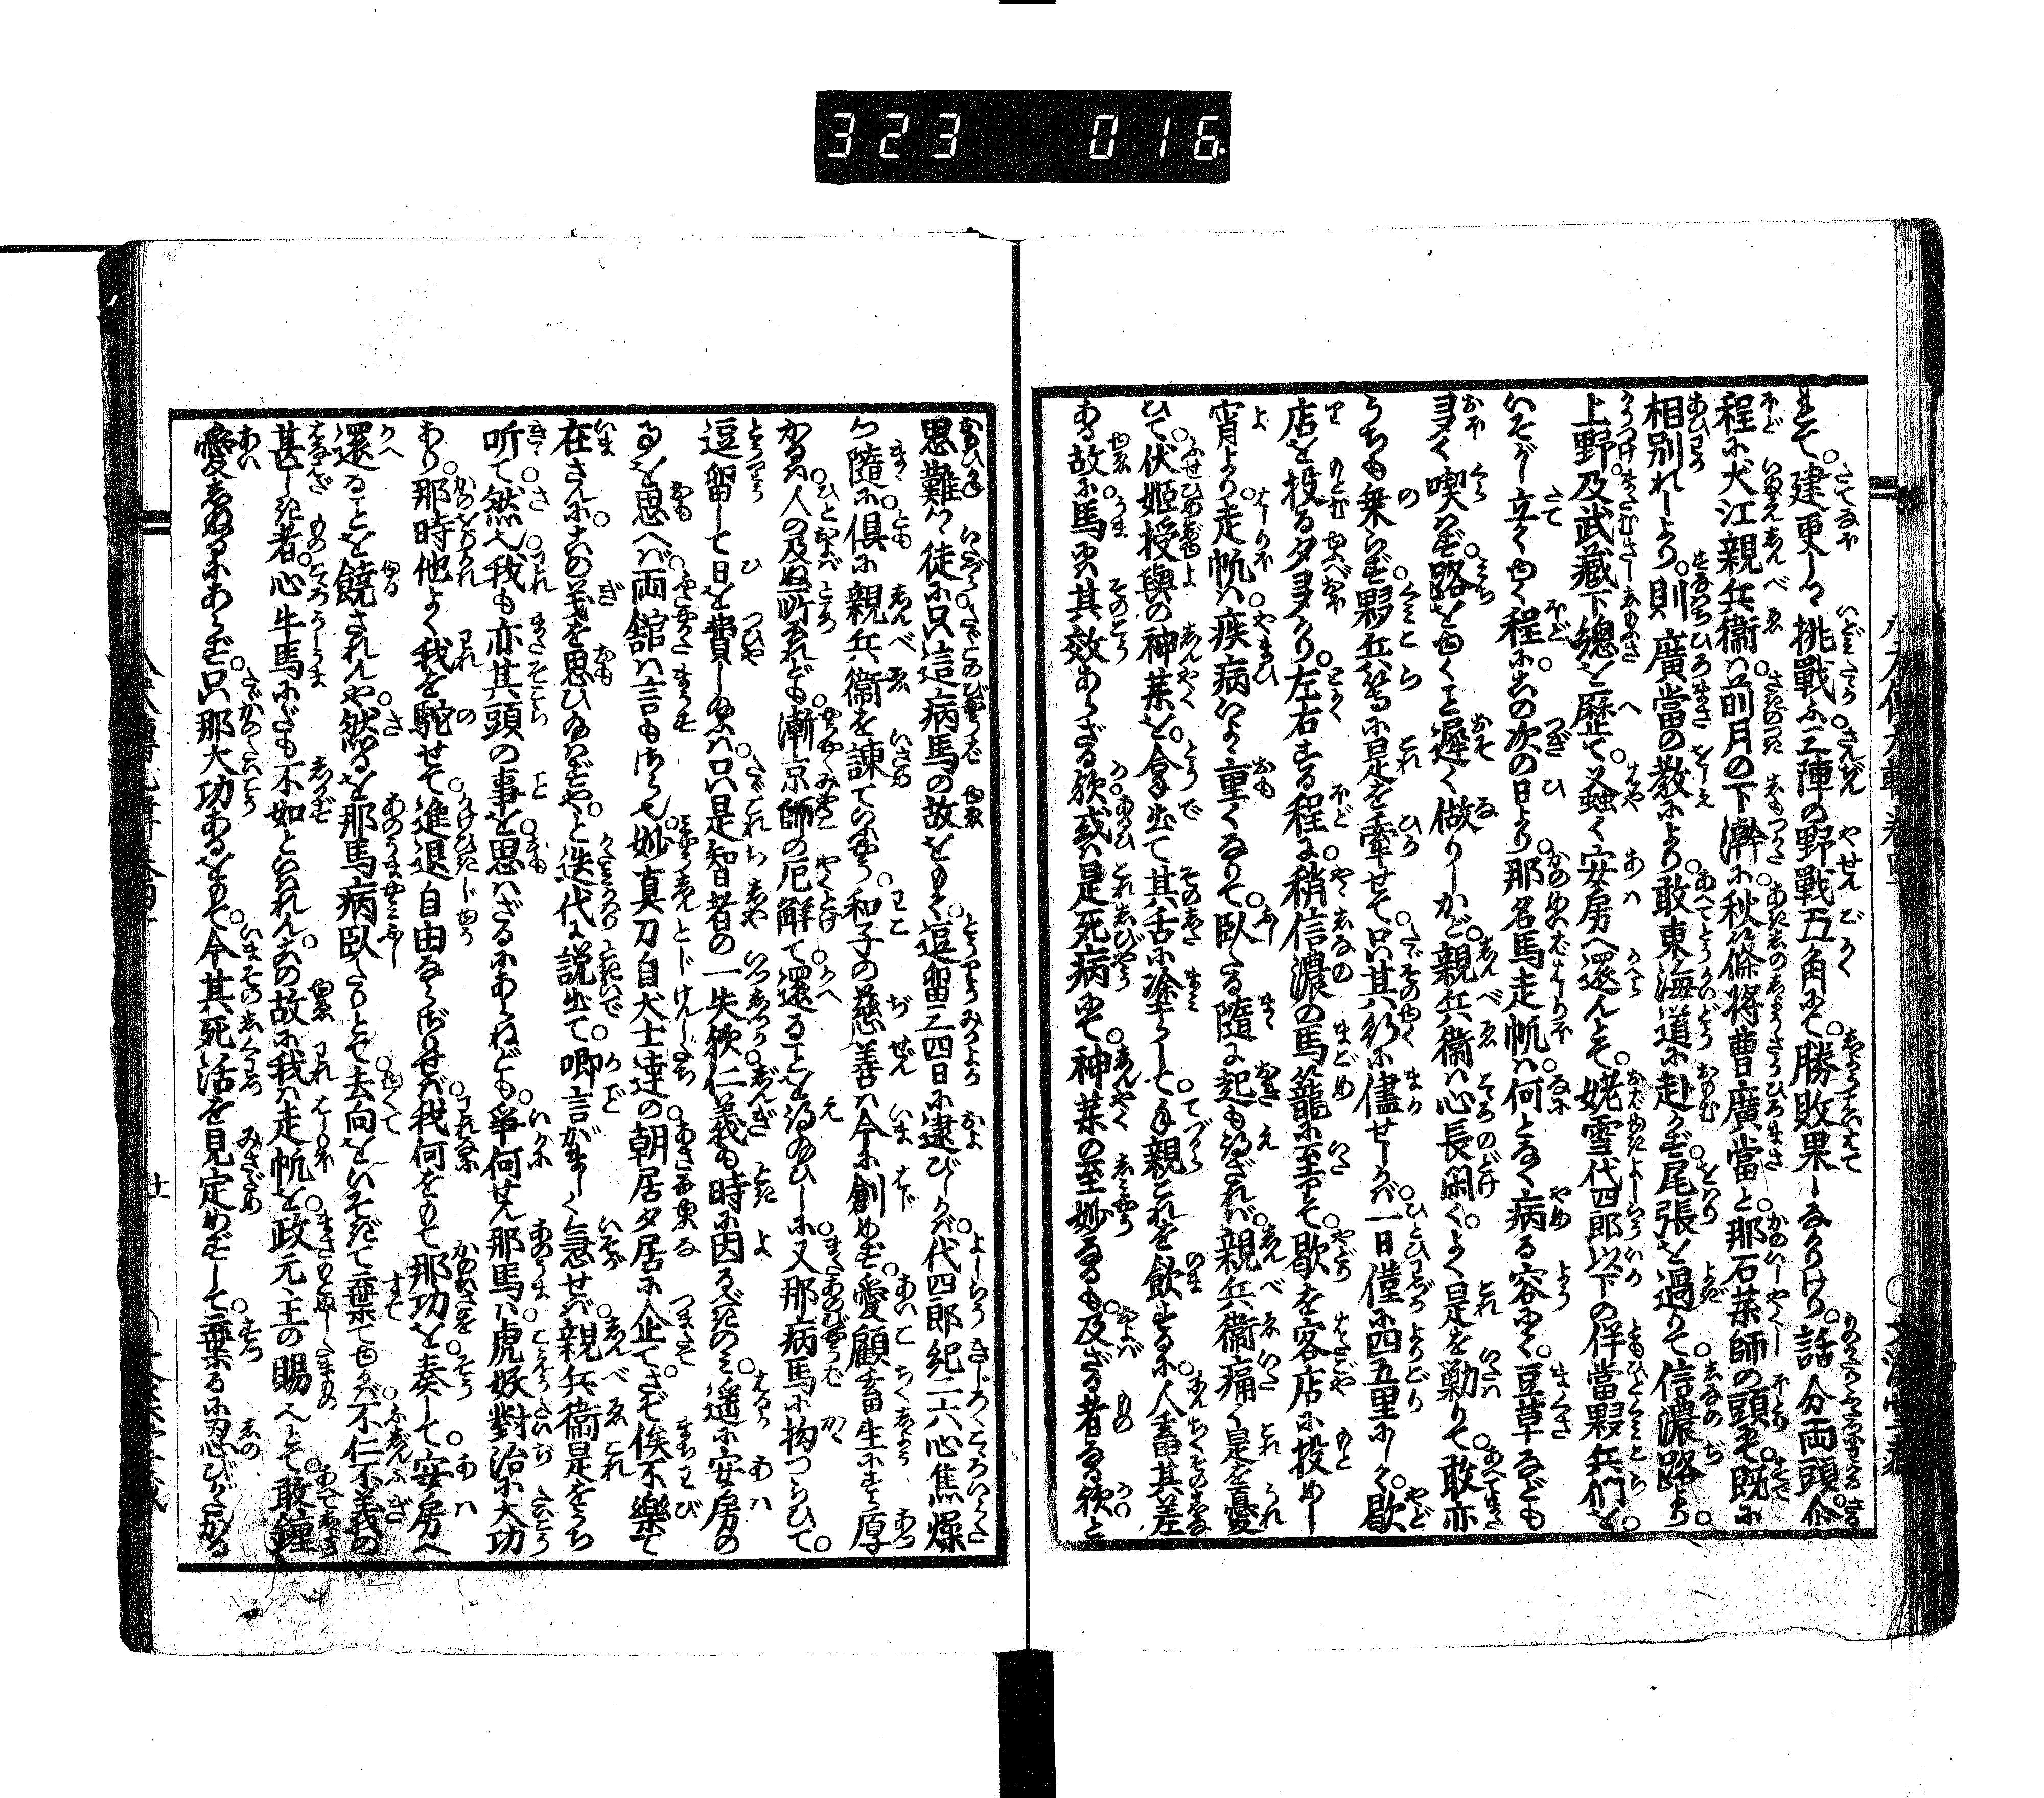 323 016
もて。建更しつ挑戰ふ三陣の野戰互角にて。勝敗果しなかりけり。話分両頭。介
程に犬江親兵衛は。前月の下澣に秋篠将曹廣當と。那石藥師の頭にて。既に
相別れしより。則廣當の教により。敢東海道に赴かず。尾張を過りて。信濃路より。
上野。及武藏下總を歴て。蚤く安房へ還んとて。姥雪代四郎以下の伴當夥兵們を。
いそがし立てゆく程に。其の次の日より。那名馬走帆は。何となく病る容にて。豆草なども
多く喫はず。路をゆくこと遅く做りしかど。親兵衛は心長閑く。よく是を勦りて。敢亦
うちも乗らず。夥兵等に是を牽せて。只其行に儘せしかば。一日僅に四五里にしく。歇
店を投る夕多かり。左右する程に。稍信濃の馬籠に至りて。歇を客店に投めし
宵より。走帆は疾病いよゝ重くなりて。臥たる隨に起も得ざれば。親兵衛痛く是を憂
ひて。伏姫授與の神藥を。拿出て其舌に塗らして。手親これを飲するに。人畜其差
ある故に。馬には其效あらざる歟。或は是死病にて。神藥の至妙なるも。及ざる者なる歟と
思難つゝ徒に。只這病馬の故をもて。逗留三四日に逮びしかば。代四郎紀二六心焦燥
つ隨に。倶に親兵衛を諫ていふやう。和子の慈善は今に創めず。愛顧畜生にすら厚
かるは。人の及ぬ所なれども。漸京師の厄觧て。還ることを得給ひしに。又那病馬に拘つらひて。
逗留して日を費し給ふは。只是智者の一失歟。仁義も時に因るべきのみ。遥に安房の
るを思へば。両舘は言もさら也。妙真刀自犬士達の。朝居夕居に企て。さぞ俟不樂て
在さんに。其の義を思ひ給はずや。と迭代に説出て。唧言がましく急せば。親兵衛是をうち
听て。然也。我も亦其頭の事を。思はざるにあらねども。爭何せん那馬は。虎妖對治に大功
あり。那時他よく我を駝せて。進退自由ならざりせば。我何をもて那功を。奏して安房へ
還ることを饒されんや。然るを那馬病臥たりとて。去向をいそぎて棄てゆかば。不仁不義の
甚しき者。心牛馬にだも不如といはれん。其の故に我は走帆を。政元主の賜へとて。敢鍾
愛しぬるにあらず。只那大功あるをもて。今其死活を見定めずして。棄るに忍びがたかる